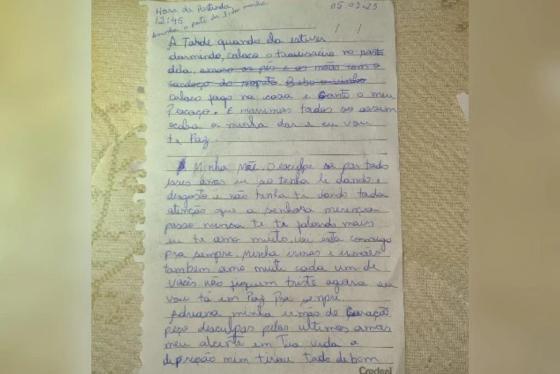 Hora da Partida
12:45
05-02-25
A Tarde quando ela estiver
dormindo, coloco o travesseiro no rosto
dela, amarro os pés e as mãos com o
cadaço do sapato. Bebo o vinho
coloco fogo na casa e Canto o meu
Pescoço. E morrimos todos so assim
acaba a minha dor e eu vou
te Paz.
Minha Mãe. Desculpe se por todo
esses anos eu so tenha le dando e
disgosto e não tenha te dando toda
atenção que a senhora merençia
posso nunca te te falando mais
eu te amo muito, vou esta comigo
pra sempre, minha irmas e irmãos
também amo muito cada um de
vocês não fiquem triste agora eu
vou tá em Paz Pra sempre
Adriana minha irmão de Coração
peço desculpas pelos ultimos anos
meu alcerte em Tua vida a
depreção mim tirou tudo de bom
Credeal